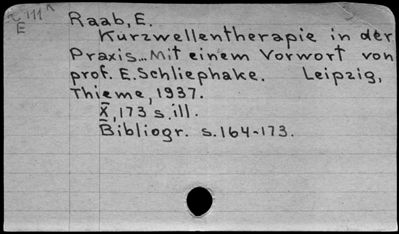 III
E
Raab, E.
Kurzwellentherapie in der
Praxis... Mit einem Vorwort von
prof. E. Schliephake. Leipzig,
Thieme, 1937.
X, 173 s. ill.
Bibliogr. s. 164-173.